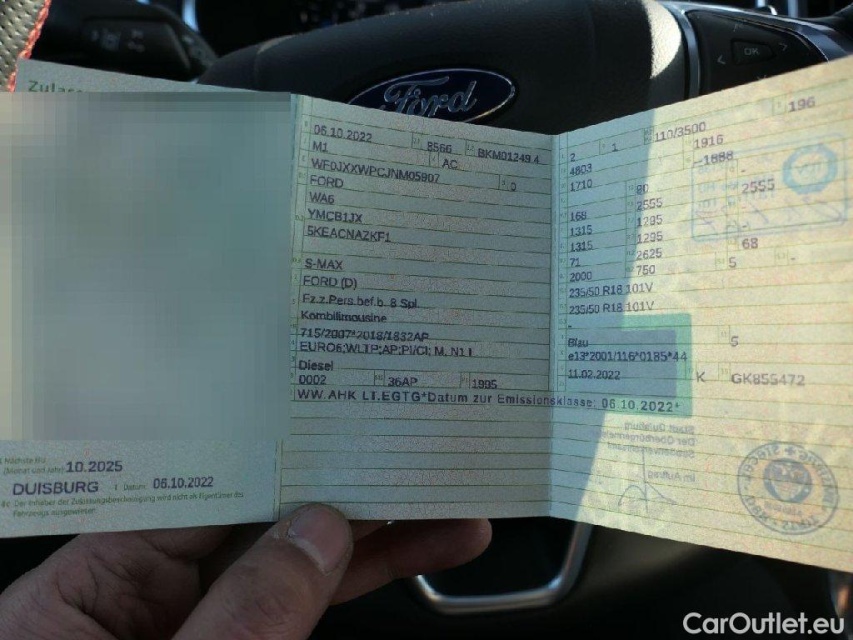 Ford
OK
06.10.2022 8566 BKM01249 4
M1 AC
WF0JXXWPCJNM05907 0
FORD
WA6
YMCB1JX
5KEACNAZKF1
S-MAX
FORD (D)
Fz.z.Pers.bef.b. 8 Spl.
Kombilimousine
715/2007*2018/1832AP
EURO6;WLTP;AP;PI/CI; M, N1 I
Diesel
0002 36AP 1995
WW.AHK LT.EGTG*Datum zur Emissionsklasse: 06.10.2022*
2 1 110/3500 196
4803 1916
1710 90 -1688 -
168 2555 - 2555
1315 1295
1315 1295 - 68
71 2625 5 -
2000 750
235/50 R18 101V
235/50 R18 101V
-
Blau 5
e13*2001/116*0185*44
11.02.2022 K GK855472
Stadt Duisburg
Der Oberbürgermeister
im Auftrag
10.2025
(Monat und Jahr)
DUISBURG Datum 06.10.2022
Der Inhaber der Zulassungsbescheinigung wird nicht als Eigentümer des
Fahrzeugs ausgewiesen.
CarOutlet.eu